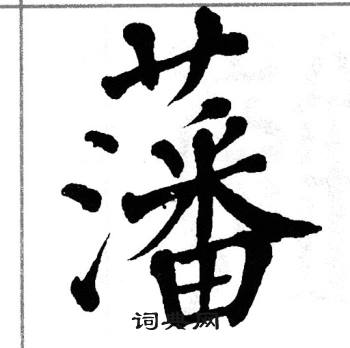 藩
词典网